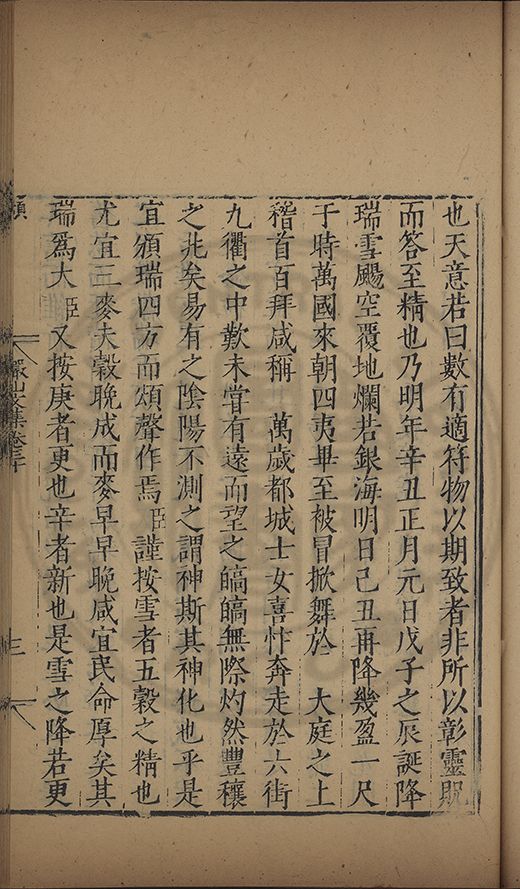 也天意若曰數有適符物以期致者非所以彰靈貺
而答至精也乃明年辛丑正月元日戊子之辰誕降
瑞雪颺空覆地爛若銀海明日己丑再降幾盈一尺
于時萬國來朝四夷畢至被冒掀舞於　大庭之上
稽首百拜咸稱　萬歲都城士女喜忭奔走於六街
九衢之中歎未嘗有遠而望之皜皜無際灼然豐穰
之兆矣易有之陰陽不測之謂神斯其神化也乎是
宜頒瑞四方而頌聲作焉臣謹按雪者五穀之精也
尤宜二麥夫穀晚成而麥早早晚咸宜民命厚矣其
瑞爲大臣又按庚者更也辛者新也是雪之降若更
儼山文集卷三十
三